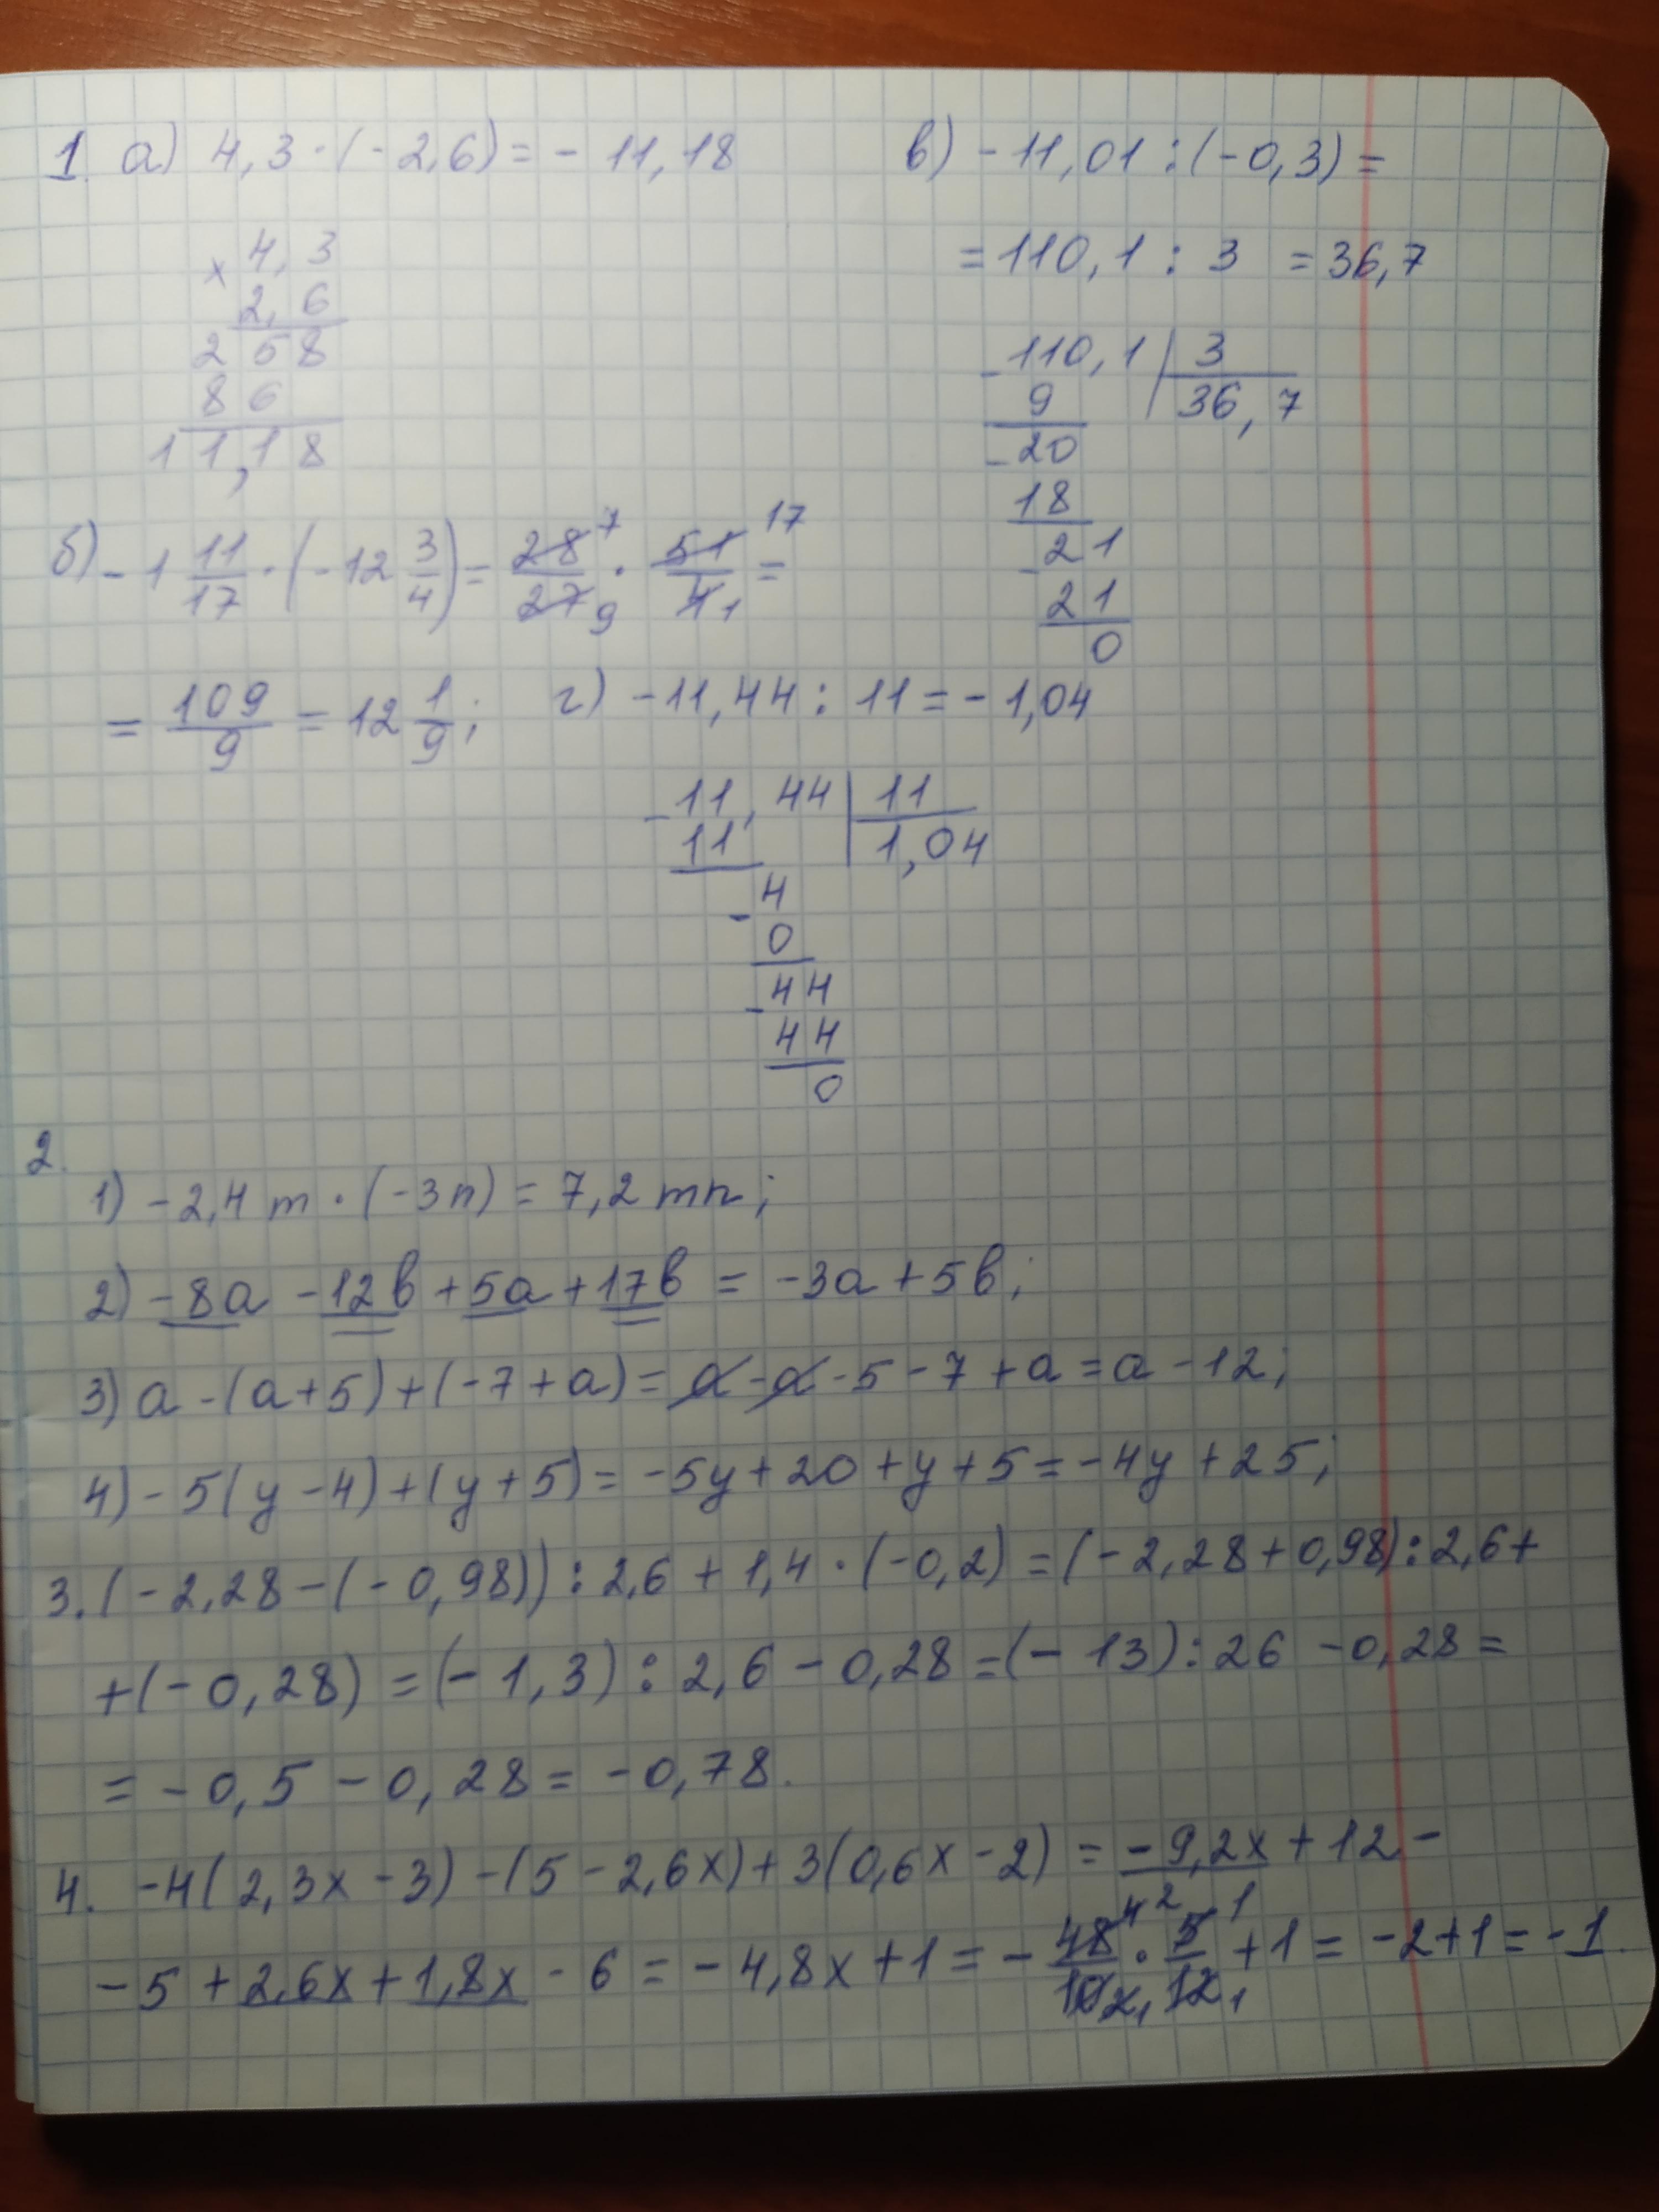 1. а) 4,3 · (-2,6) = - 11,18
× 4,3
2,6
258
86
11,18
б) - 1 11/17 · (-12 3/4) = 28/27 · 51/4 =
7 17
9 1
= 109/9 = 12 1/9;
в) - 11,01 : (-0,3) =
= 110,1 : 3 = 36,7
- 110,1 | 3
9 36,7
- 20
18
- 21
21
0
г) - 11,44 : 11 = - 1,04
- 11,44 | 11
11 1,04
- 4
0
- 44
44
0
2.
1) - 2,4 m · (-3n) = 7,2 mn;
2) - 8a - 12b + 5a + 17b = -3a + 5b;
3) a - (a+5) + (-7+a) = a - a - 5 - 7 + a = a - 12;
4) - 5(y - 4) + (y + 5) = -5y + 20 + y + 5 = -4y + 25;
3. (-2,28 - (-0,98)) : 2,6 + 1,4 · (-0,2) = (-2,28 + 0,98) : 2,6 +
+ (-0,28) = (-1,3) : 2,6 - 0,28 = (-13) : 26 - 0,28 =
= -0,5 - 0,28 = -0,78.
4. -4(2,3x - 3) - (5 - 2,6x) + 3(0,6x - 2) = -9,2x + 12 -
4 2 1
- 5 + 2,6x + 1,8x - 6 = - 4,8x + 1 = - 48/10 · 5/12 + 1 = -2 + 1 = -1.
2 1 1